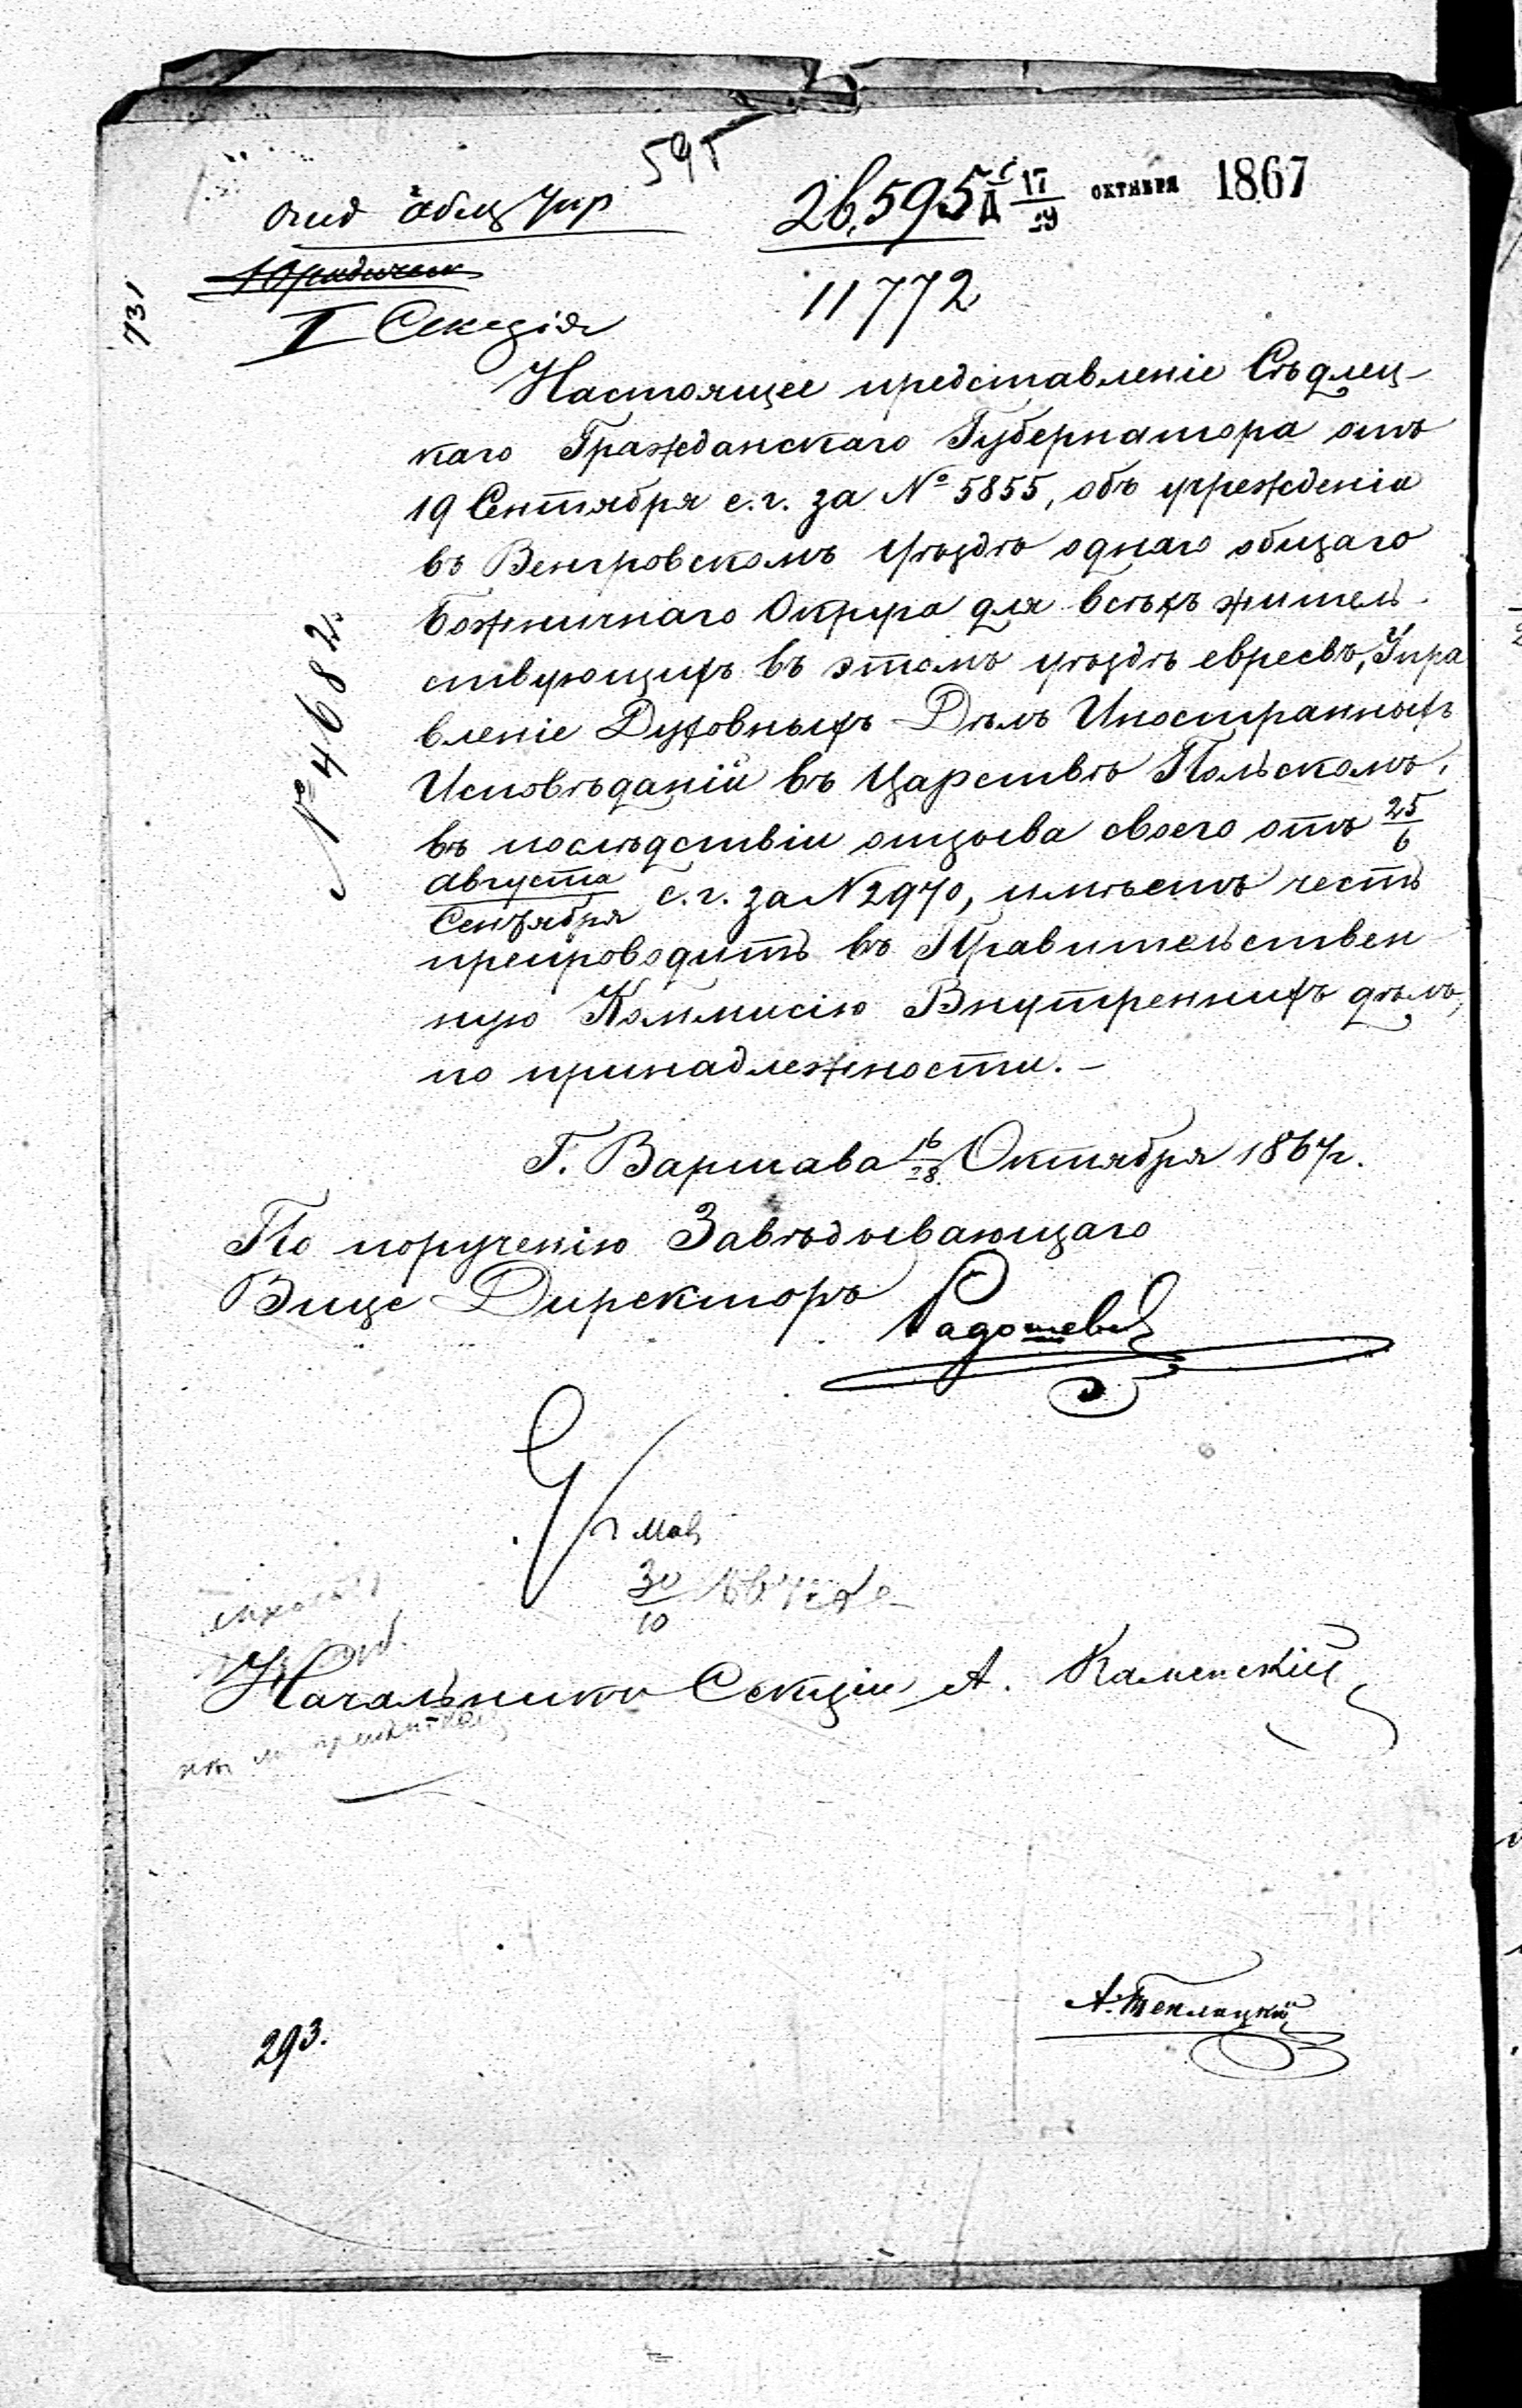 595
26,595 Д 17/29 ОКТЯБРЯ 1867
Общ Упр
Юридическ
11772
I Секція
731
Настоящее представленіе Сѣдлец-
каго Гражданскаго Губернатора отъ
19 Сентября с.г. за № 5855, объ учрежденіи
въ Венгровскомъ уѣздѣ однаго общаго
Божничнаго Округа для всѣхъ житель-
ствующихъ въ этомъ уѣздѣ евреевъ, Упра
вленіе Духовныхъ Дѣлъ Иностранныхъ
Исповѣданій въ Царствѣ Польскомъ,
въ послѣдствіи отзыва своего отъ 25/6
Августа/Сентября с.г. за N 2970, имѣетъ честь
препроводить въ Правительствен
ную Коммисію Внутреннихъ дѣлъ,
по принадлежности. –
№ 4682.
Г. Варшава 16/28 Октября 1867 г.
По порученію Завѣдывающаго
Вице Директоръ
30/10
Начальникъ Секціи А. Каменскій
293.